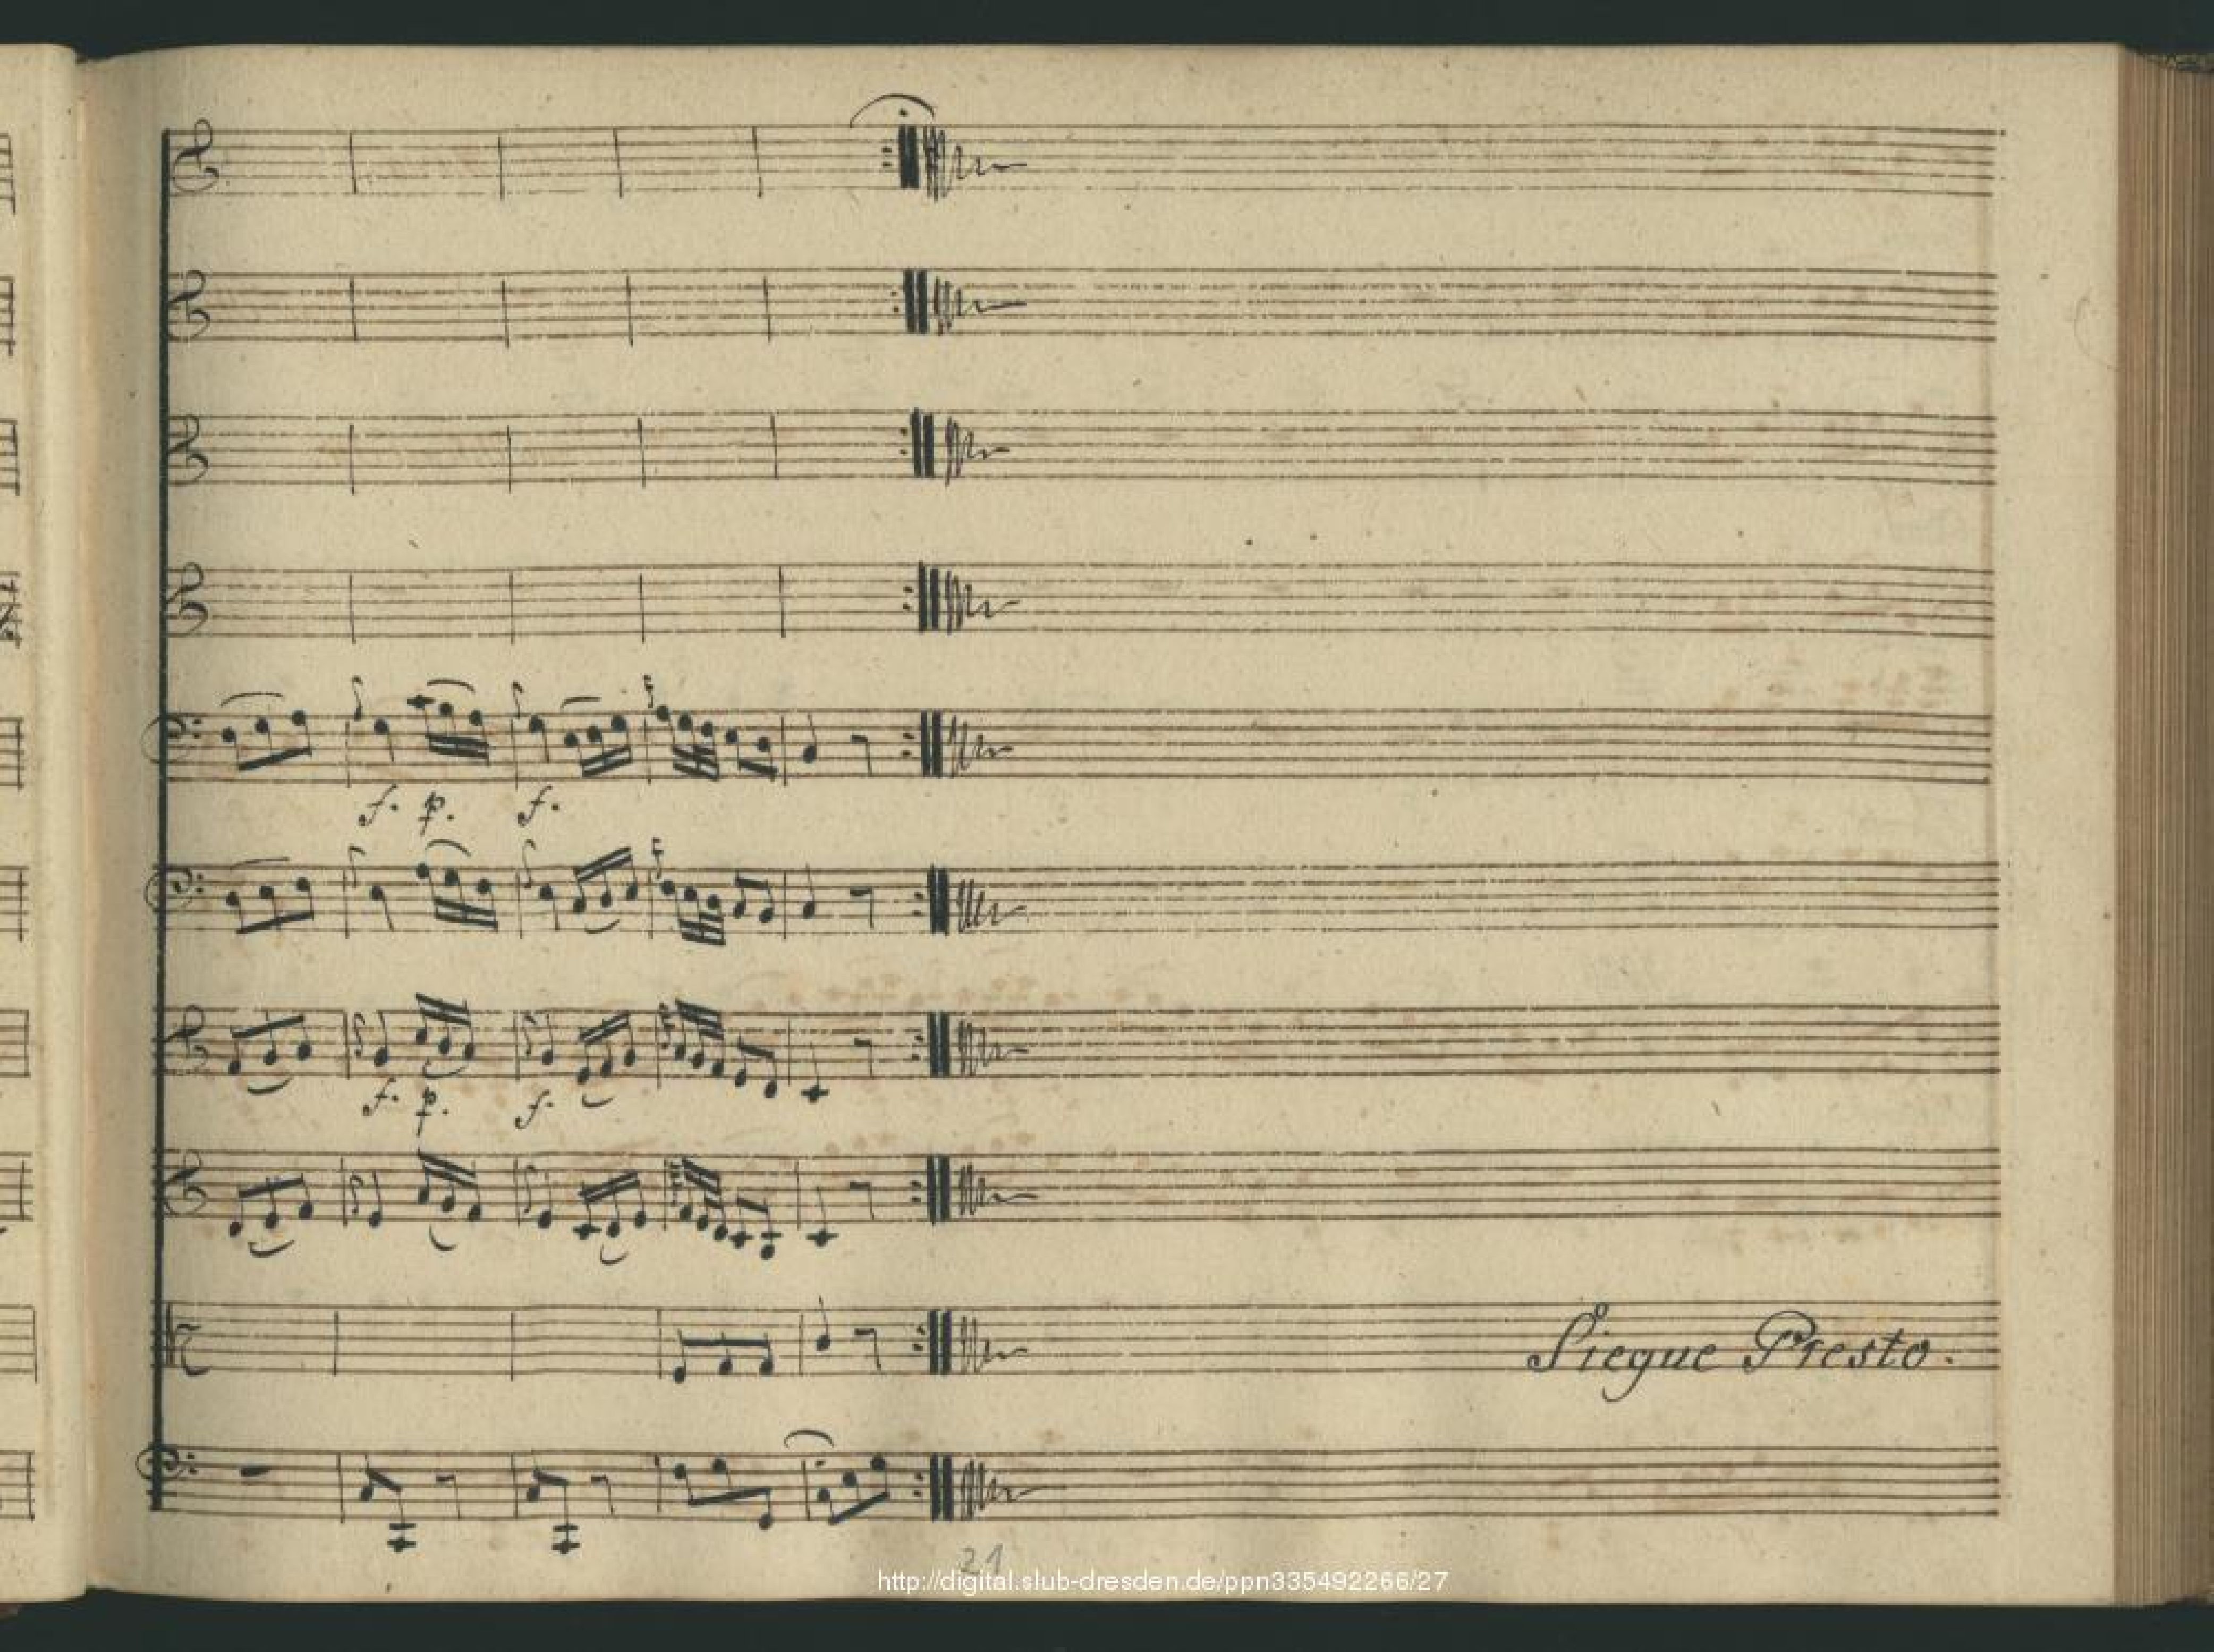 f. p. f.
f. p. f.
Siegue Presto.
21
http://digital.slub-dresden.de/ppn335492266/27